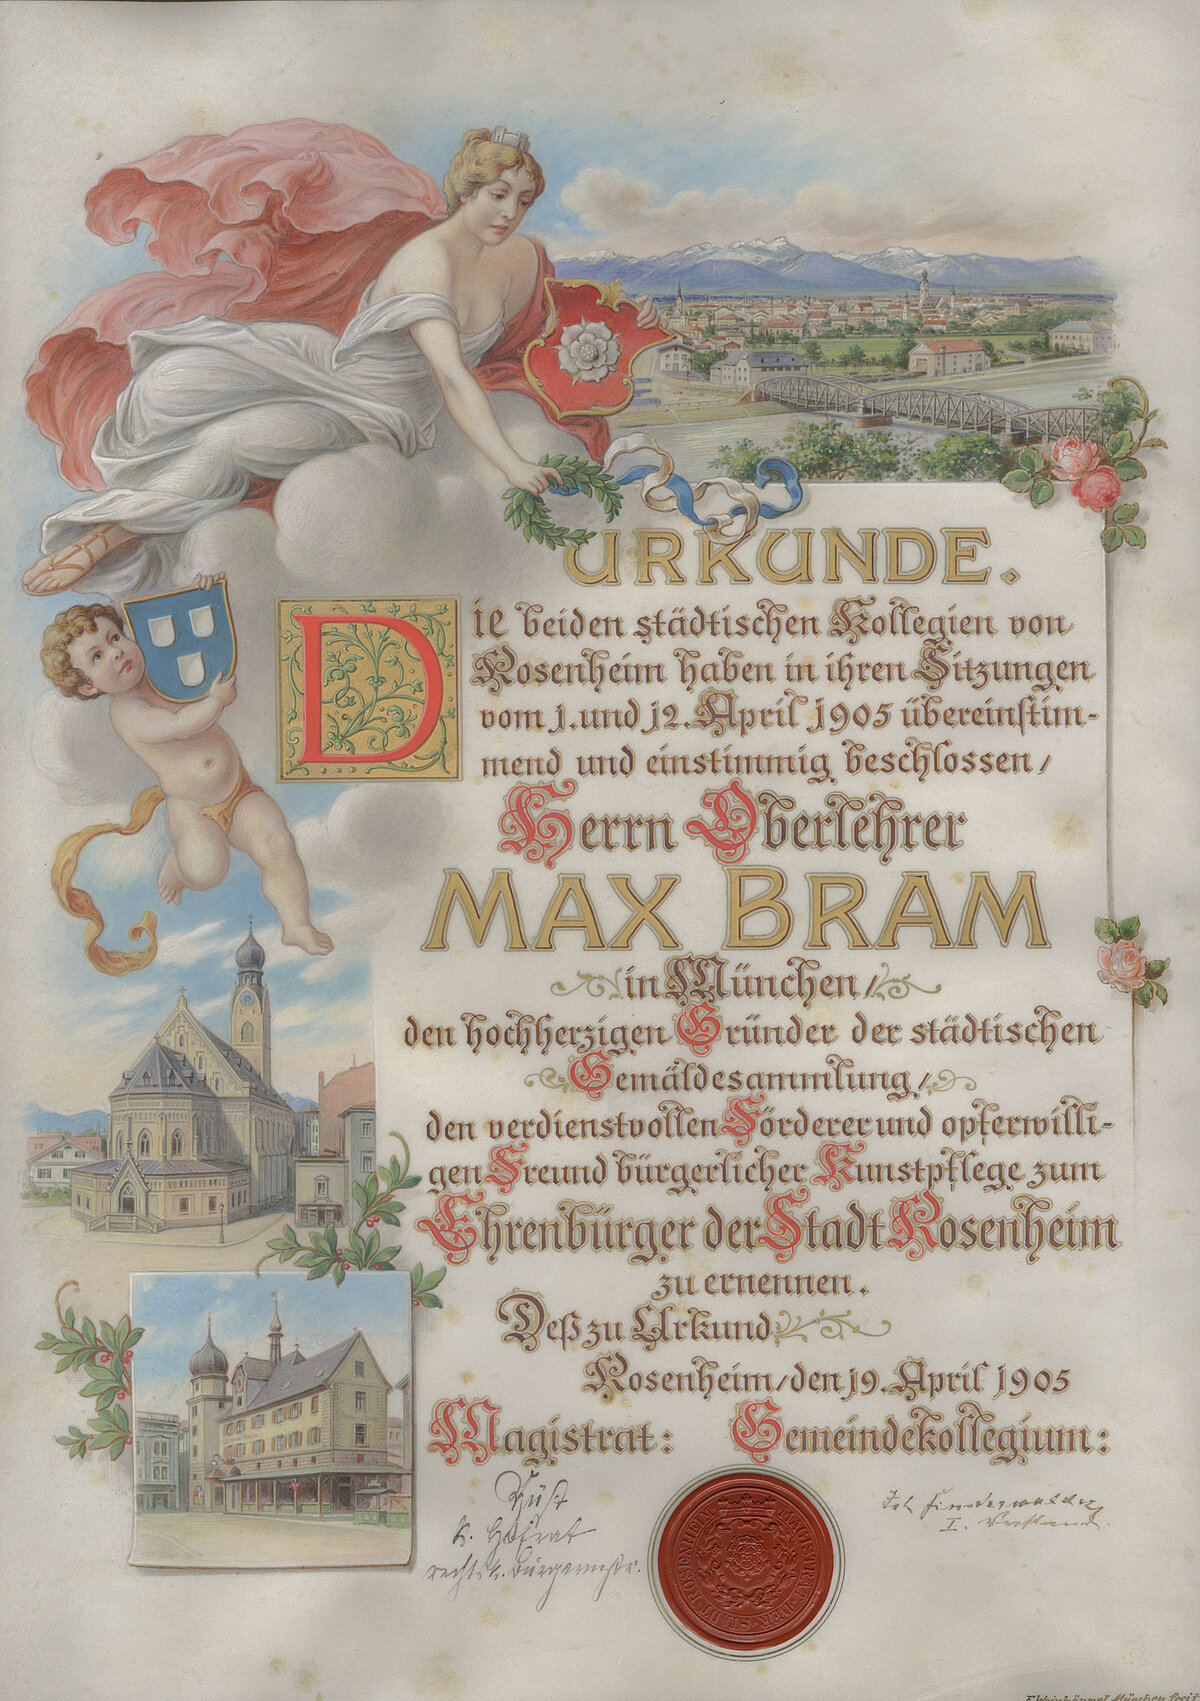 URKUNDE.
Die beiden städtischen Kollegien von
Rosenheim haben in ihren Sitzungen
vom 1. und 12. April 1905 übereinstim-
mend und einstimmig beschlossen/
Herrn Oberlehrer
MAX BRAM
in München/
den hochherzigen Gründer der städtischen
Gemäldesammlung/
den verdienstvollen Förderer und opferwilli-
gen Freund bürgerlicher Kunstpflege zum
Ehrenbürger der Stadt Rosenheim
zu ernennen.
Deß zu Urkund
Rosenheim/den 19. April 1905
Magistrat: Gemeindekollegium:
Wüst
k. Hofrat
rechtsk. Bürgermstr.
Joh Finsterwalder
I. Vorstand.
MAGISTRAT DER STADT ROSENHEIM
München